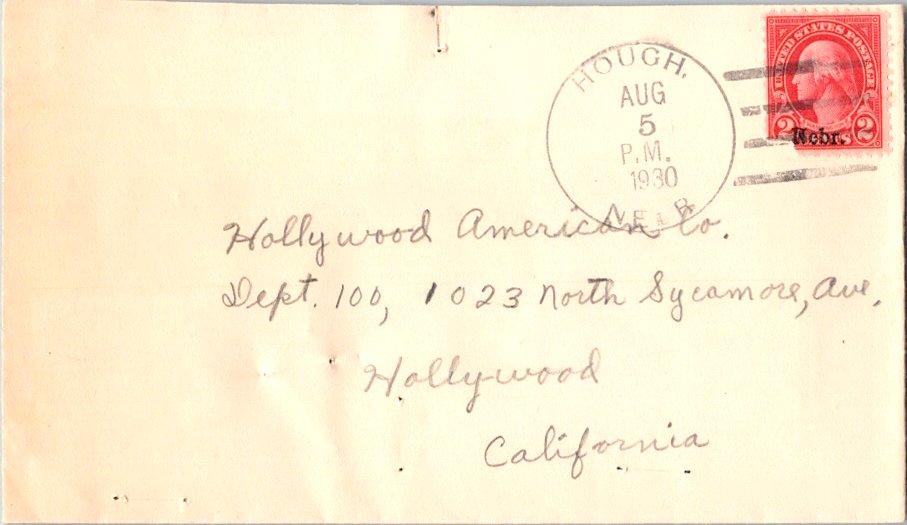 UNITED STATES POSTAGE
2 2
Nebr.
HOUGH,
AUG
5
P.M.
1930
NEBR
Hollywood American Co.
Dept. 100, 1023 North Sycamore, Ave,
Hollywood
California